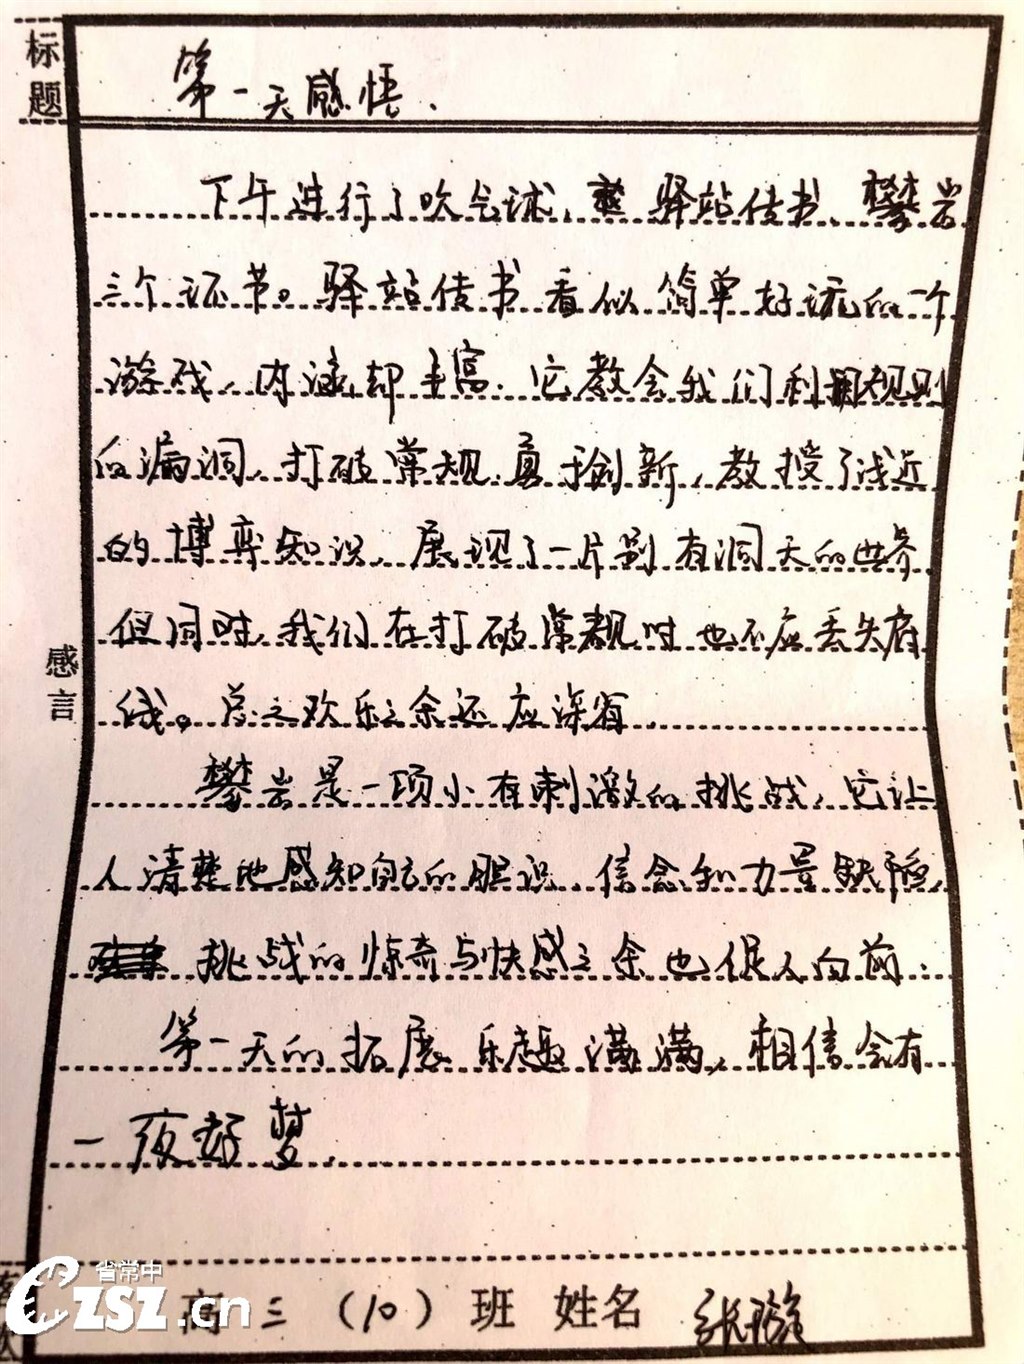 标题
第一天感悟.
下午进行了吹气球、驿站传书、攀岩
三个环节。驿站传书看似简单好玩的一个
游戏,内涵却丰富.它教会我们利用规则
的漏洞,打破常规,勇于创新,教授了浅近
的博弈知识,展现了一片别有洞天的世界
但同时,我们在打破常规时也不应丢失底
线。总之欢乐之余还应深省.
攀岩是一项小有刺激的挑战,它让
人清楚地感知自己的胆识、信念和力量缺陷,
挑战的惊奇与快感之余也促人向前.
第一天的拓展乐趣满满,相信会有
一夜好梦.
感言
高三(10)班 姓名 张璇
省常中
CZSZ.cn